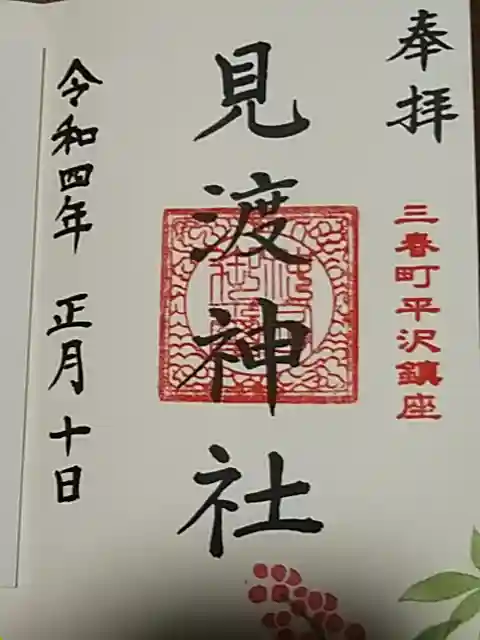 奉拝
三春町平沢鎮座
見渡神社
令和四年 正月 十日